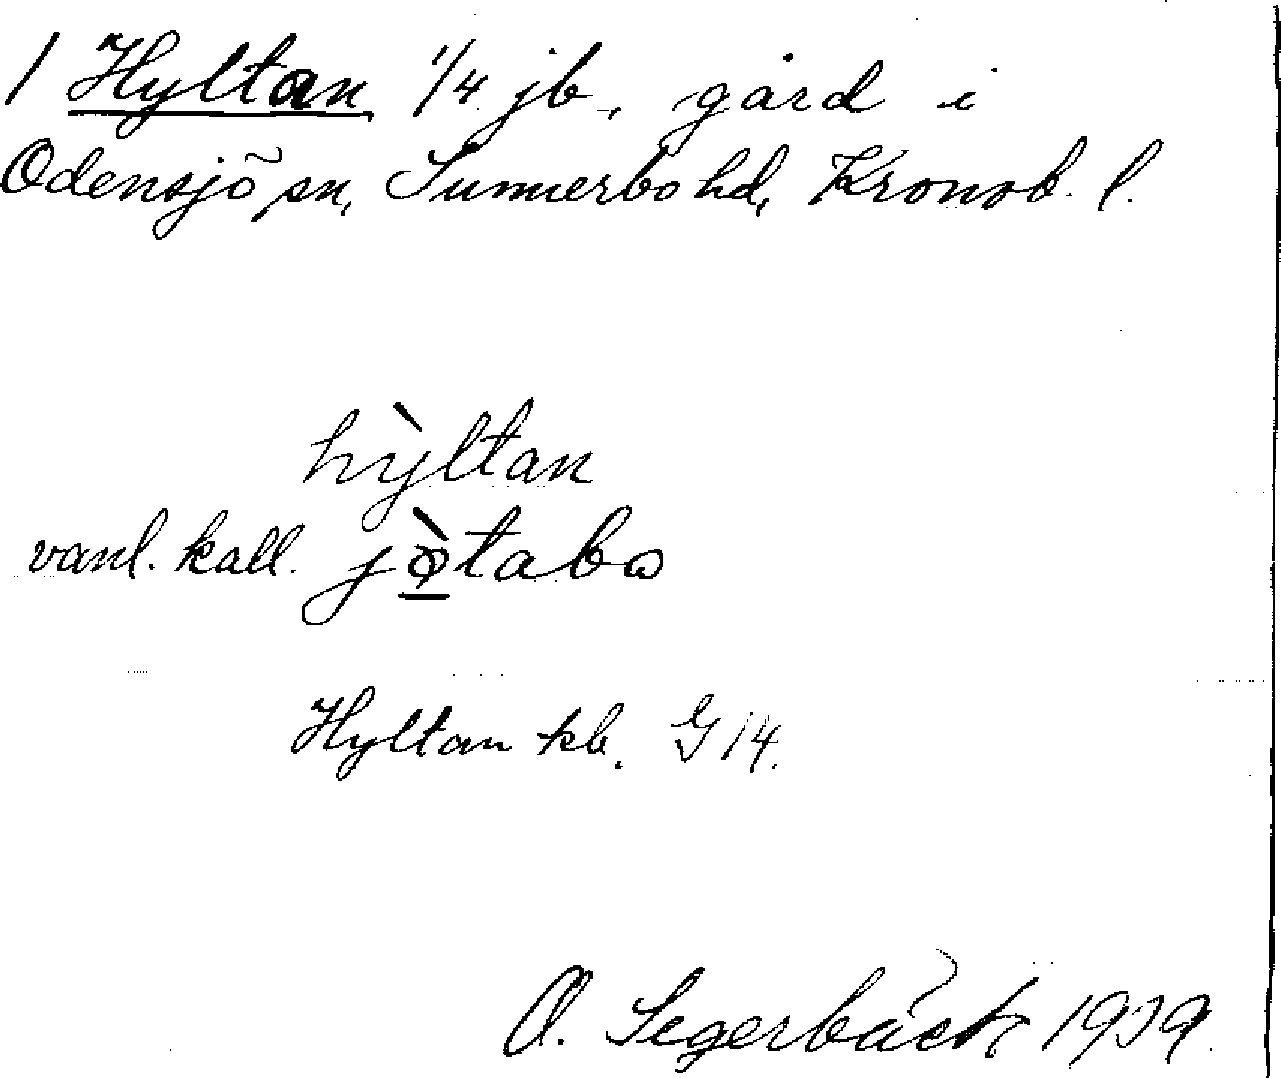 1 Hyltan 1/4 jb, gård i
Odensjö sn, Sunnerbo hd, Kronob. l.
hỳltan
vanl. kall. jø̀tabo
Hyltan kb. G 14.
O. Segerbäck 1939.